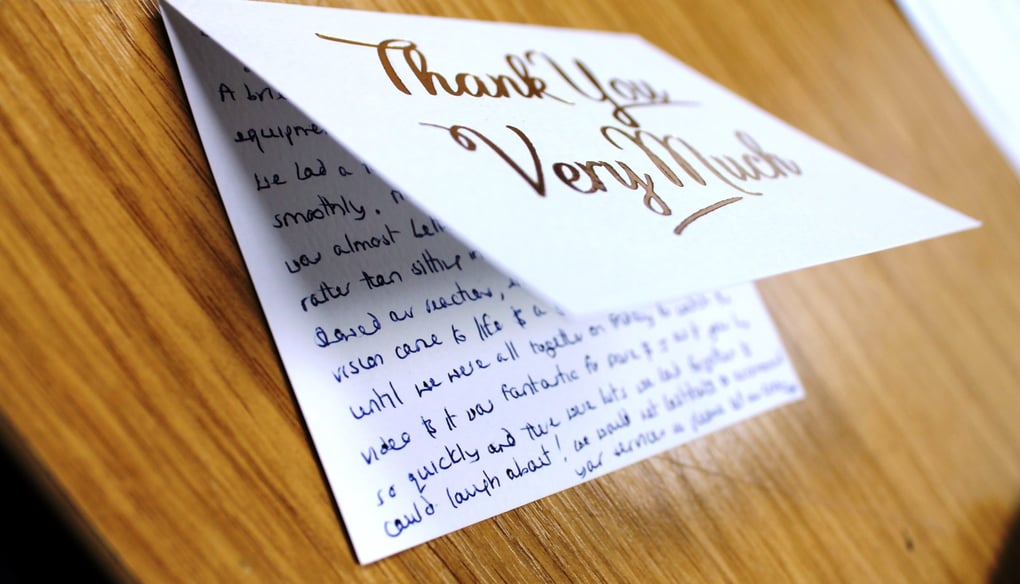 Thank You
Very Much
A brie
equipme
we had a
smoothly.
was almost
rather than sitting in
showed our reactions,
vision came to life & a
until we were all together on Friday to watch the
video & it was fantastic for some of us
so quickly and there were lots we had forgotten &
could laugh about! we would not hesitate to recommend
your services